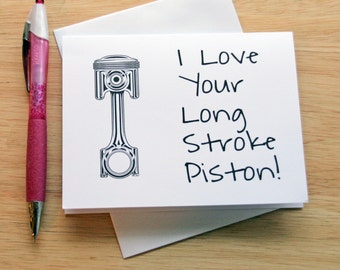 I Love
Your
Long
Stroke
Piston!